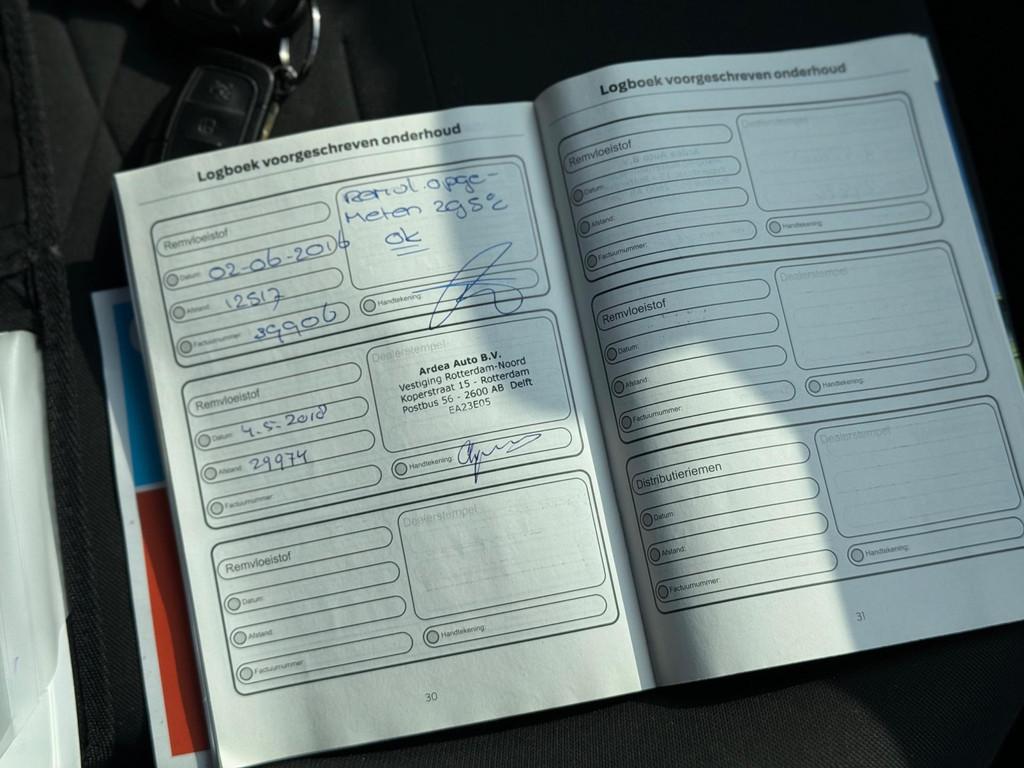 Logboek voorgeschreven onderhoud
Remvloeistof
Datum: 02-06-2016
Afstand: 12517
Factuurnummer: 39906
Remvl. opge-
meten 295°C
OK
Handtekening:
Remvloeistof
Datum: 4.5.2018
Afstand: 29974
Factuurnummer:
Dealerstempel
Ardea Auto B.V.
Vestiging Rotterdam-Noord
Koperstraat 15 - Rotterdam
Postbus 56 - 2600 AB Delft
EA23E05
Handtekening:
Remvloeistof
Datum:
Afstand:
Factuurnummer:
Dealerstempel
Handtekening:
30
Logboek voorgeschreven onderhoud
Remvloeistof
Datum:
Afstand:
Factuurnummer:
Dealerstempel
Handtekening:
Remvloeistof
Datum:
Afstand:
Factuurnummer:
Dealerstempel
Handtekening:
Distributieriemen
Datum:
Afstand:
Factuurnummer:
Dealerstempel
Handtekening:
31